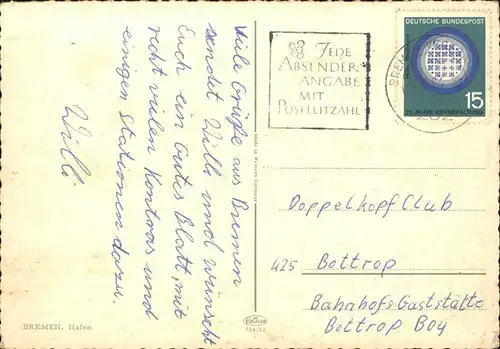 Viele Grüße aus Bremen
sendet Willi und wünscht
Euch ein Gutes Blatt, mit
recht vielen Kontras und
einigen Stationen dazu.
Willi.
BREMEN, Hafen
JEDE
ABSENDER-
ANGABE
MIT
POSTLEITZAHL
DEUTSCHE BUNDESPOST
15
25 JAHRE KERNSPALTUNG
BREM
Doppelkopf Club
425 Bottrop
Bahnhofs Gaststätte
Bottrop Boy